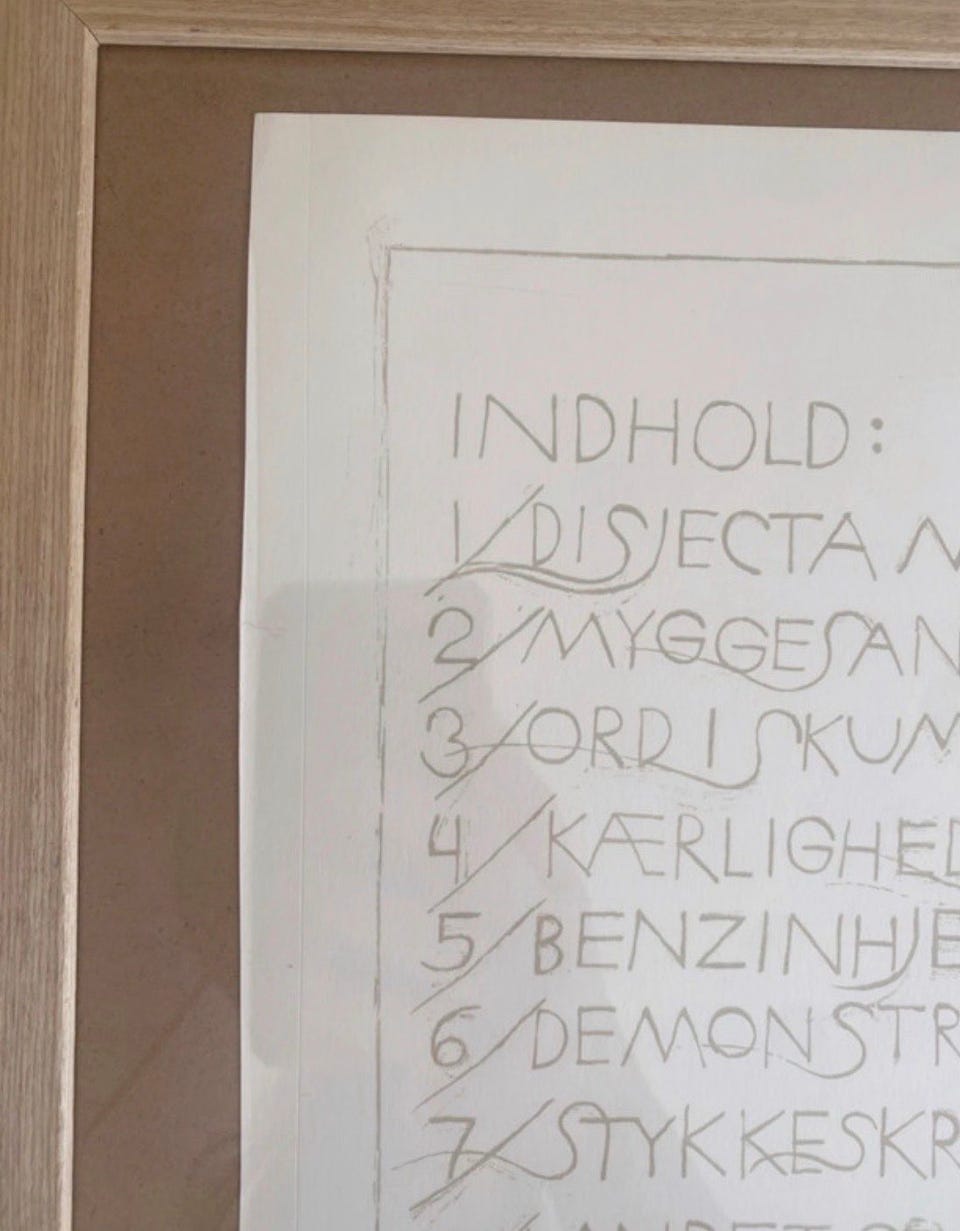 INDHOLD:
1/ DISJECTA
2/ MYGGESAN
3/ ORD I SKUM
4/ KÆRLIGHED
5/ BENZINHJE
6/ DEMONSTR
7/ STYKKESKR